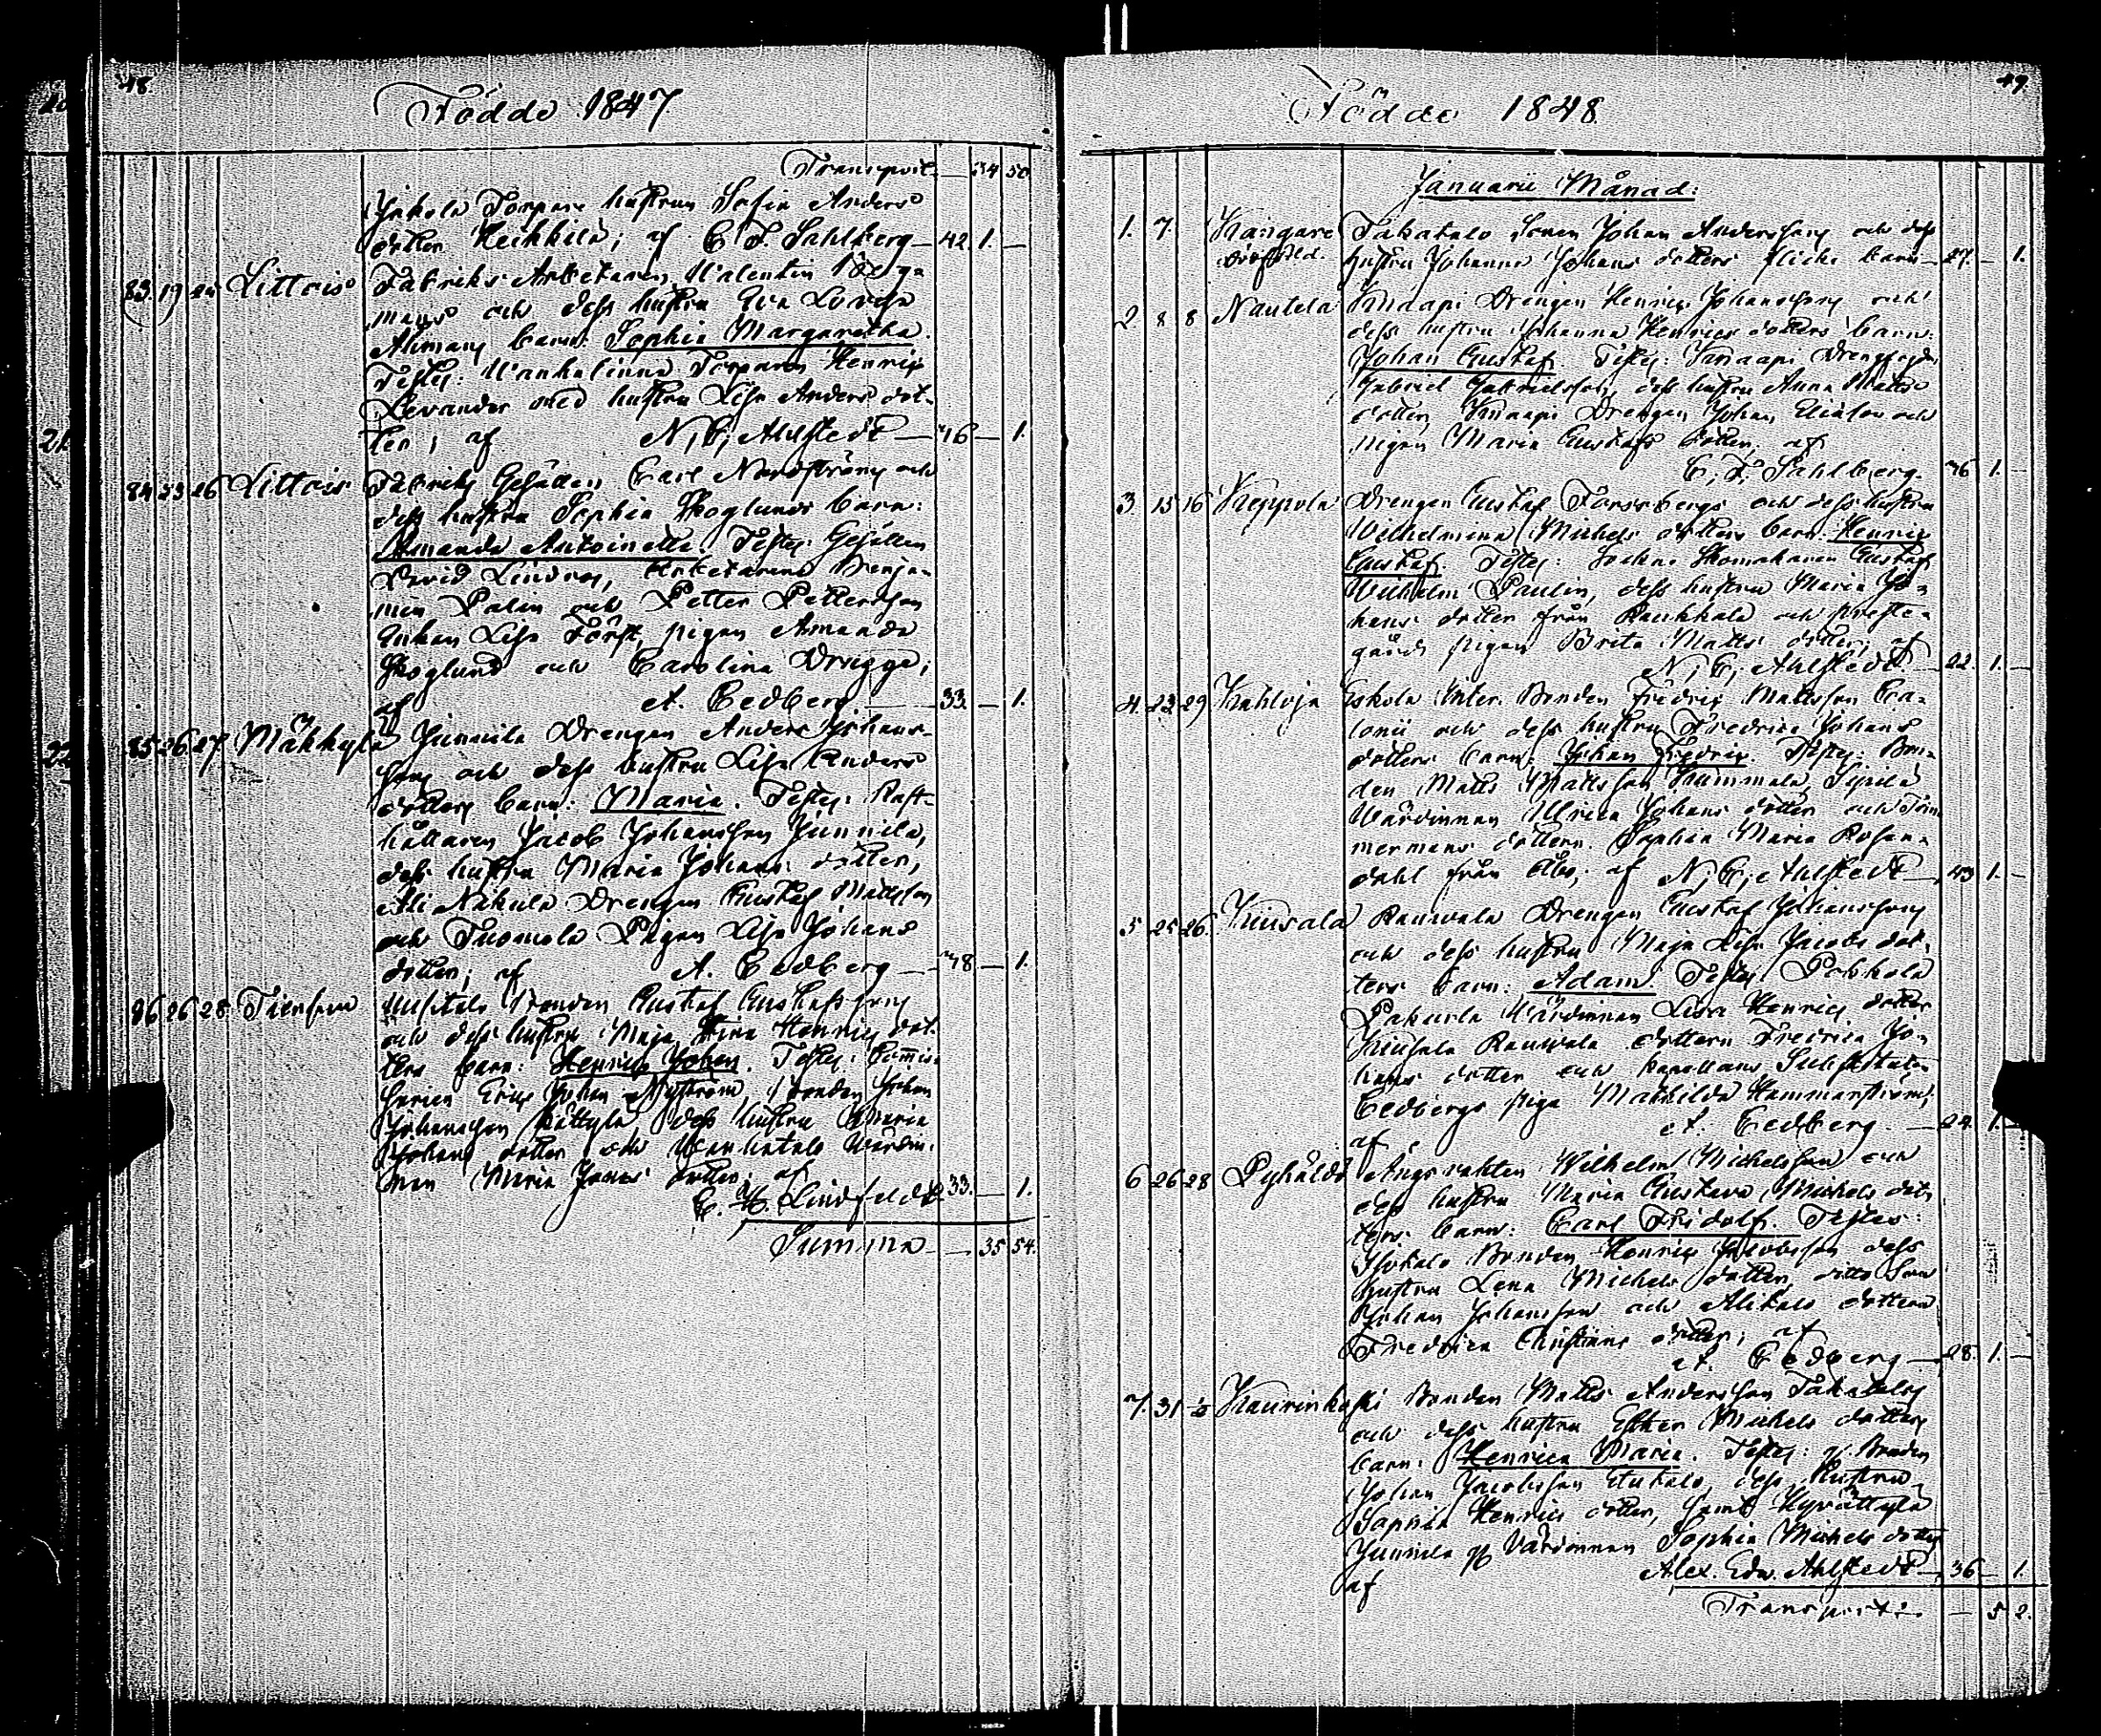 48.
Födde 1847
Transport — 34 50
Jakola Torpare hustrun Sofia Anders
dotter Heikkilä; af C. F. Sahlberg — 42. 1. —
83. 19 25 Littois Fabriks Arbetaren Valentin
mans och dess hustru Eva Lovisa
Ahman barn: Sophia Margaretha.
Testes: Vanhalinna Torparen Henrix
Levander med hustru Lisa Anders dot-
ter; af N, C, Ahlstedt — 46 — 1.
84 23 26 Littois Fabriks Gesällen Carl Nordström och
dess hustru Sophia Skoglunds barn:
Amanda Antoinette. Testes: Gesällen
David Lindros, Arbetarene Benja-
min Palin och Petter Pettersson
Enkan Lisa Först, pigan Amanda
Skoglund och Carolina Drugge;
af A. Cedberg — 33. — 1.
85 26 27 Mäkkylä Junnila Drengen Anders Johans-
son och dess hustru Lisa Anders
dotters barn: Maria. Testes: Rust-
hållaren Jacob Johansson Junnila,
dess hustru Maria Johans dotter,
Ali Nakula Drengen Gustaf Mattsson
och Tuomola Pigan Lisa Johans
dotter; af A. Cedberg — 48 — 1.
86 26 28 Bonden Gustaf Gustafsson
och dess hustru Maja Stina Henrics dot-
ters barn: Henric Johan. Testes: Commis-
sarien Eric Johan Nyström, Bonden Johan
Johansson Kättylä, dess hustru Maria
Johans dotter och Vanhatalo Värdin-
nan Maria Jonas dotter; af
C. H. Lindfeldt 33. — 1.
Summa — 35 54.
49.
Födde 1848
Januarii Månad:
1. 7. Kangare Takatalo Sonen Johan Anderssons och dess
odöpt död. hustru Johanna Johans dotters flicke barn — 27. — 1.
2. 8 8 Nautela Knaapi Drengen Henric Johansson och
dess hustru Johanna Henrics dotters barn:
Johan Gustaf. Testes: Knaapi Drengen
Gabriel Gabrielsson, dess hustru Anna Matts
dotter, Knaapi Drengen Johan Eliasson och
pigan Maria Gustafs dotter; af
C. F. Sahlberg. 46 1. —
3 15 16 Keppola Drengen Gustaf Forssbergs och dess hustru
Wilhelmina Michels dotters barn: Henric
Gustaf. Testes: Sockne Skomakaren Gustaf
Wilhelm Paulin, dess hustru Maria Jo-
hans dotter från Raukkala och preste-
gårds pigan Brita Matts dotter, af
N, C, Ahlstedt — 22. 1. —
4. 23 29 Kahloja Eskola Inter. Bonden Fredric Mattsson
och dess hustru Fredrica Johans
dotters barn: Johan Fredric. Testes: Bon-
den Matts Mattsson Kummala, Sipilä
Värdinnan Ulrica Johans dotter och Tim-
mermans dottern Sophia Maria Rosen-
dahl från Åbo; af N, C, Ahlstedt — 43 1. —
5 25 26. Kuivala Rauvala Drengen Gustaf Johansson
och dess hustru Maja Lisa Jacobs dot-
ters barn: Adam. Testes: Pohkola
Pakurla Värdinnan Lisa Henrics dotter
Rauvala dottern Fredrica Jo-
hans dotter och Kapellans Substituten
Cedbergs piga Mathilda Hammarström;
af A. Cedberg. — 24. 1. —
6 26 28 Pyhältö Ängsvakten Wilhelm Michelsson och
dess hustru Maria Gustava Michels dot-
ters barn: Carl Fridolf. Testes:
Isotalo Bonden Henric Jacobsson dess
hustru Lena Michels dotter, ditto Son
Johan Johansson och Alitalo dottern
Fredrica Christians dotter; af
A. Cedberg — 28. 1. —
7. 31 ½ Kaurinkoski Bonden Matts Andersson Takatalos
och dess hustru Esther Michels dotters
barn: Henrica Maria. Testes: gl. Bonden
Johan Jacobsson Etutalo, dess hustru
Sophia Henrics dotter, samt Hyvättylä
Junnila gl. Värdinnan Sophia Michels dotter
af Alex. Edw. Ahlstedt — 36 — 1.
Transport: — 5 2.